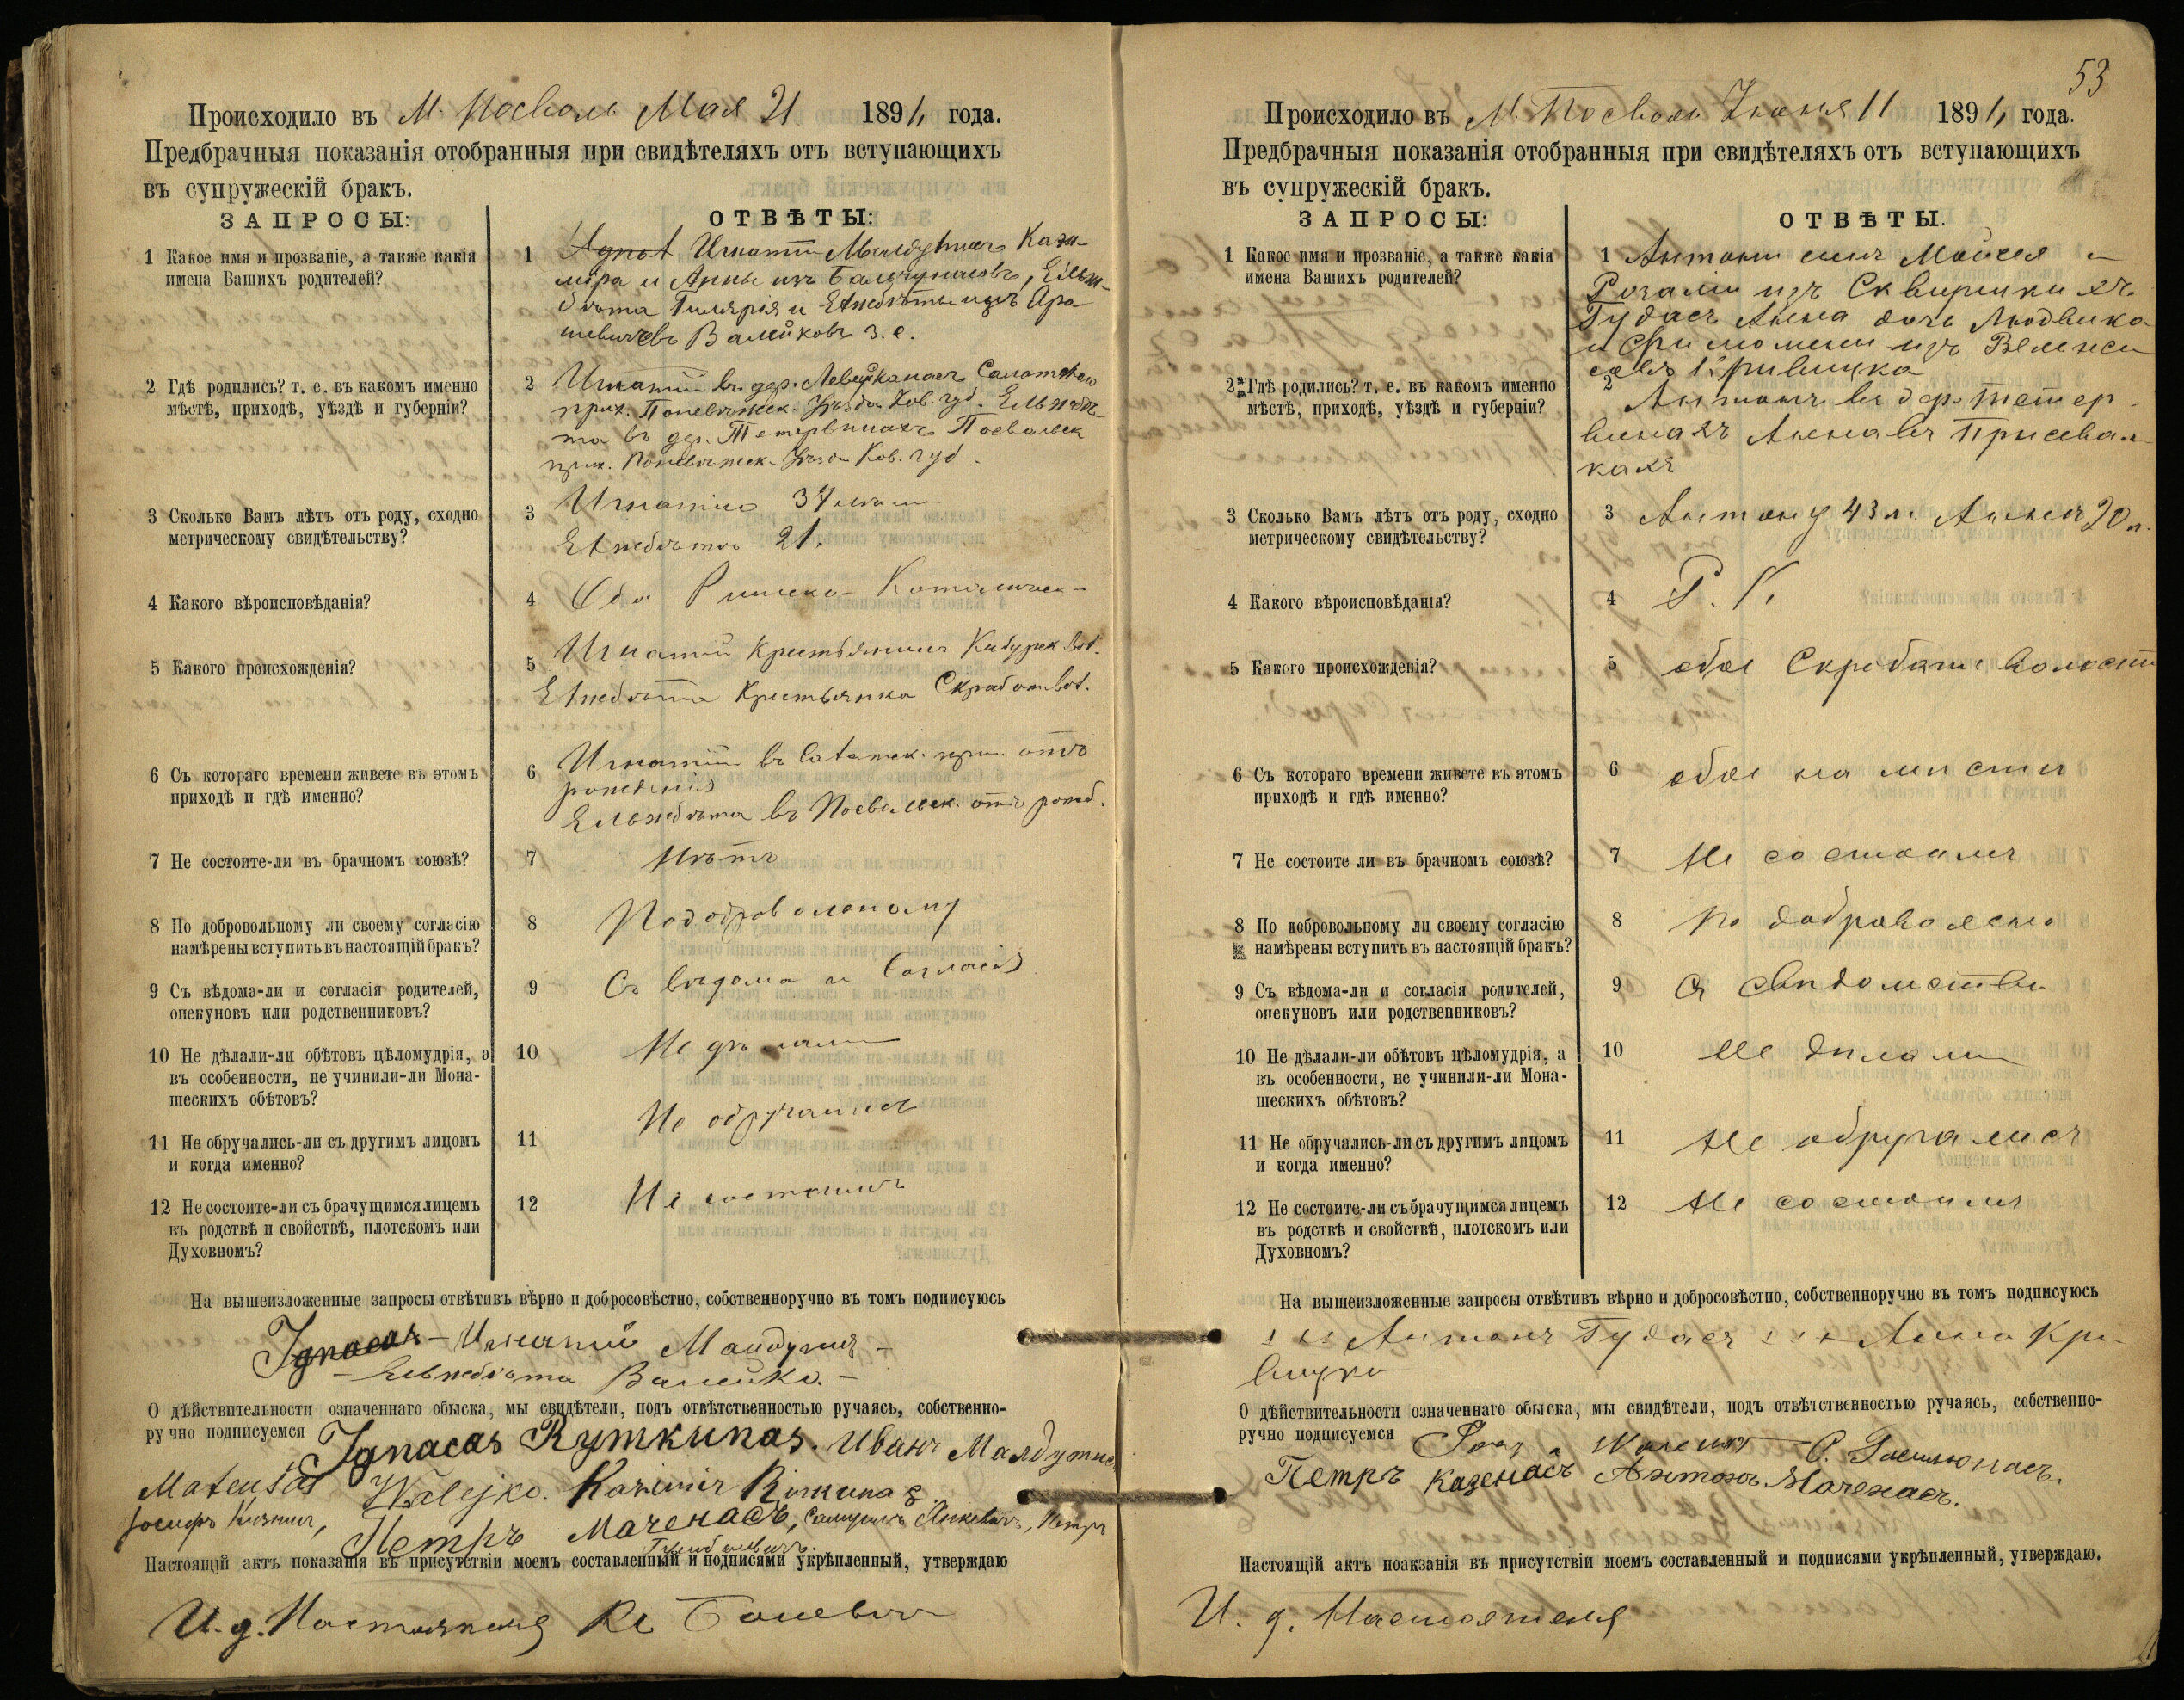 Происходило въ М. Посволь Мая 21 1891, года.
Предбрачныя показанія отобранныя при свидѣтеляхъ отъ вступающихъ
въ супружескій бракъ.
ЗАПРОСЫ: ОТВѢТЫ:
1 Какое имя и прозваніе, а также какія
имена Вашихъ родителей?
1 Игнатій Малдутисъ Кази-
мира и Анны изъ
Гилярія и изъ
Валейковъ з. с.
2 Гдѣ родились? т. е. въ какомъ именно
мѣстѣ, приходѣ, уѣздѣ и губерніи?
2 Игнатій въ дер.
прих. Поневѣжск. уѣзда Ков. губ.
та въ дер. Тетервинахъ Посвольск
прих. Поневѣжск. уѣзд Ков. губ.
3 Сколько Вамъ лѣтъ отъ роду, сходно
метрическому свидѣтельству?
3 Игнатію 37
21.
4 Какого вѣроисповѣданія?
4 Оба Римско-Католическ-
5 Какого происхожденія?
5 Игнатій Крестьянинъ вол.
Крестьянка Скработ. вол.
6 Съ котораго времени живете въ этомъ
приходѣ и гдѣ именно?
6 Игнатій въ прих. отъ
рожденія
Ельжбѣта въ Посвольск. отъ рожд.
7 Не состоите-ли въ брачномъ союзѣ?
7 Нѣтъ
8 По добровольному ли своему согласію
намѣрены вступить въ настоящій бракъ?
8 По добровольному
9 Съ вѣдома-ли и согласія родителей,
опекуновъ или родственниковъ?
9 Съ вѣдома и согласія
10 Не дѣлали-ли обѣтовъ цѣломудрія, а
въ особенности, не учинили-ли Мона-
шескихъ обѣтовъ?
10 Не дѣлали
11 Не обручались-ли съ другимъ лицомъ
и когда именно?
11 Не обручались
12 Не состоите-ли съ брачущимся лицемъ
въ родствѣ и свойствѣ, плотскомъ или
Духовномъ?
12 Не состоимъ
На вышеизложенные запросы отвѣтивъ вѣрно и добросовѣстно, собственноручно въ томъ подписуюсь
Ignacas - Игнатій -
- Ельжбѣта Валейко. -
О дѣйствительности означеннаго обыска, мы свидѣтели, подъ отвѣтственностью ручаясь, собственно-
ручно подписуемся Ignacas Rymkunas. Иванъ Малдутис
Mateušas Walejko. Kazimir Rimkunas
Петръ Маченасъ, Самуилъ Янкевичъ, Петръ
Настоящій актъ показанія въ присутствіи моемъ составленный и подписями укрѣпленный, утверждаю
И. д. Настоятеля
53
Происходило въ М. Посволь Іюня 11 1891, года.
Предбрачныя показанія отобранныя при свидѣтеляхъ отъ вступающихъ
въ супружескій бракъ.
ЗАПРОСЫ: ОТВѢТЫ.
1 Какое имя и прозваніе, а также какія
имена Вашихъ родителей?
1 Антонъ сынъ Мойсея и
Розаліи изъ
Гудасъ Анна дочь Людвика
и Филомены изъ
2 Гдѣ родились? т. е. въ какомъ именно
мѣстѣ, приходѣ, уѣздѣ и губерніи?
2 Антонъ въ дер. Тетер-
винахъ Анна въ Присвал-
кахъ
3 Сколько Вамъ лѣтъ отъ роду, сходно
метрическому свидѣтельству?
3 Антону 43 л. Аннѣ 20 л.
4 Какого вѣроисповѣданія?
4 Р. К.
5 Какого происхожденія?
5 обое волости
6 Съ котораго времени живете въ этомъ
приходѣ и гдѣ именно?
6 обое на мисти
7 Не состоите ли въ брачномъ союзѣ?
7 Не состоимъ
8 По добровольному ли своему согласію
намѣрены вступить въ настоящій бракъ?
8 По добровольно
9 Съ вѣдома-ли и согласія родителей,
опекуновъ или родственниковъ?
9
10 Не дѣлали-ли обѣтовъ цѣломудрія, а
въ особенности, не учинили-ли Мона-
шескихъ обѣтовъ?
10 Не дилали
11 Не обручались-ли съ другимъ лицомъ
и когда именно?
11 Не обручались
12 Не состоите-ли съ брачущимся лицемъ
въ родствѣ и свойствѣ, плотскомъ или
Духовномъ?
12 Не состоимъ
На вышеизложенные запросы отвѣтивъ вѣрно и добросовѣстно, собственноручно въ томъ подписуюсь
Антонъ Гудасъ Анна Кри-
вицка
О дѣйствительности означеннаго обыска, мы свидѣтели, подъ отвѣтственностью ручаясь, собственно-
ручно подписуемся
Петръ Казенасъ Антонъ Маченасъ.
Настоящій актъ поакзанія въ присутствіи моемъ составленный и подписями укрѣпленный, утверждаю.
И. д. Настоятеля